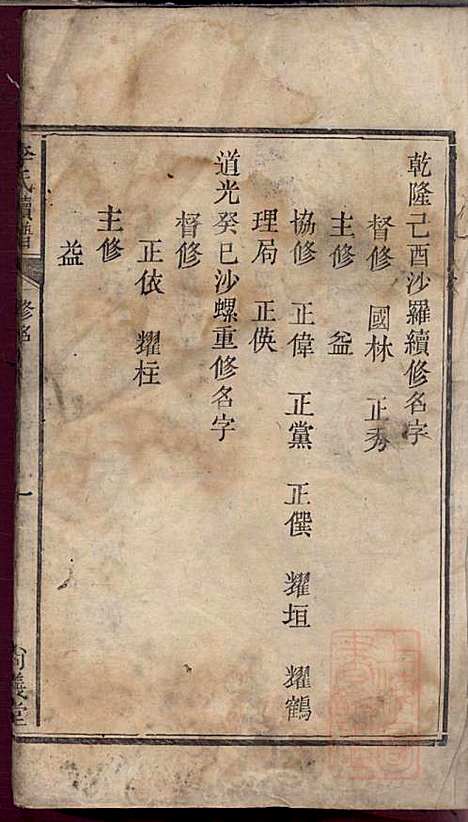 乾隆己酉沙羅續修名字
督修 國林 正秀
主修 益
協修 正偉 正黨 正僎 耀垣 耀鶴
理局 正倓
道光癸巳沙螺重修名字
督修
正依 耀柱
主修
益
李氏續譜
修名
一
尚義堂